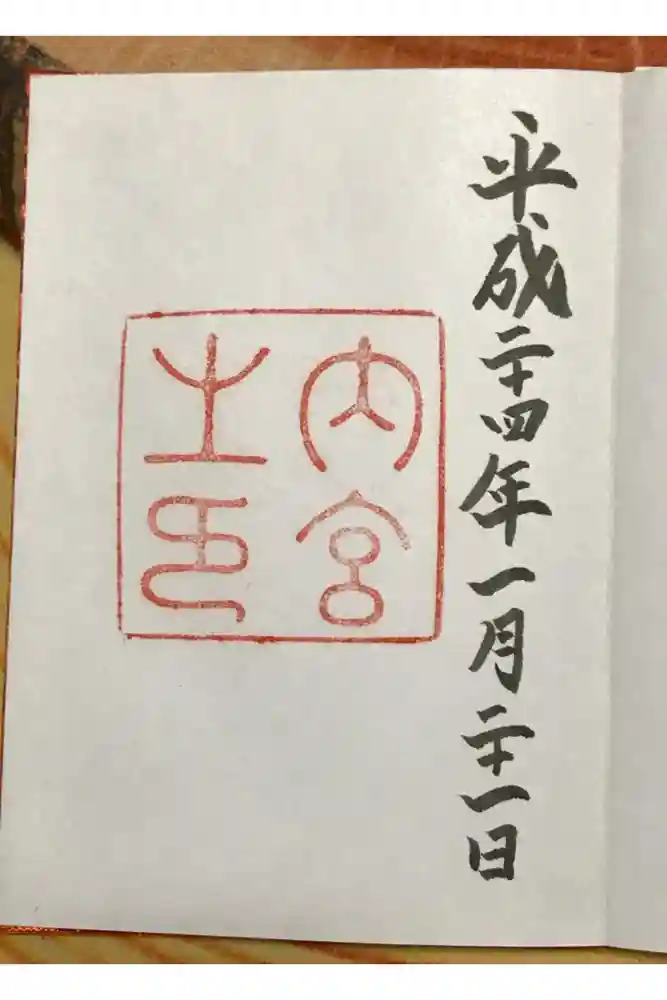 平成二十四年一月二十一日
内宮
之印